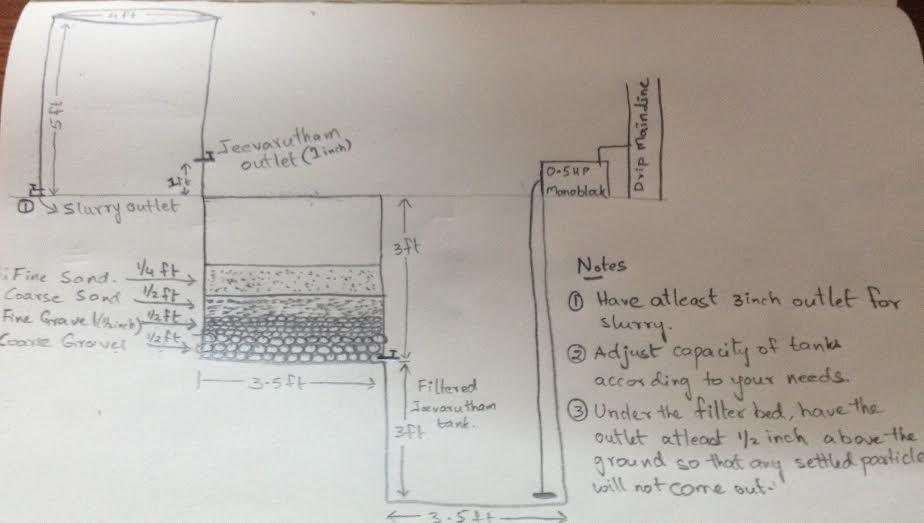 4ft
5 ft
Jeevarutham
outlet (1inch)
1ft
① Slurry outlet
Drip Mainline
0.5HP
Monoblock
3ft
Fine Sand. 1/4 ft
Coarse Sand 1/2 ft
Fine Gravel (1/2 inch) 1/2 ft
Coarse Gravel 1/2 ft
3.5ft
Filtered
Jeevarutham
tank.
3ft
3.5ft
Notes
① Have atleast 3inch outlet for
slurry.
② Adjust capacity of tanks
according to your needs.
③ Under the filter bed, have the
outlet atleast 1/2 inch above the
ground so that any settled particle
will not come out.